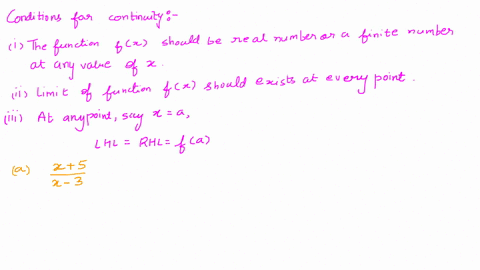 Conditions for continuity:-
(i) The function f(x) should be real number or a finite number
at any value of x.
(ii) Limit of function f(x) should exists at every point.
(iii) At any point, say x = a,
LHL = RHL = f(a)
(a) x+5 / x-3